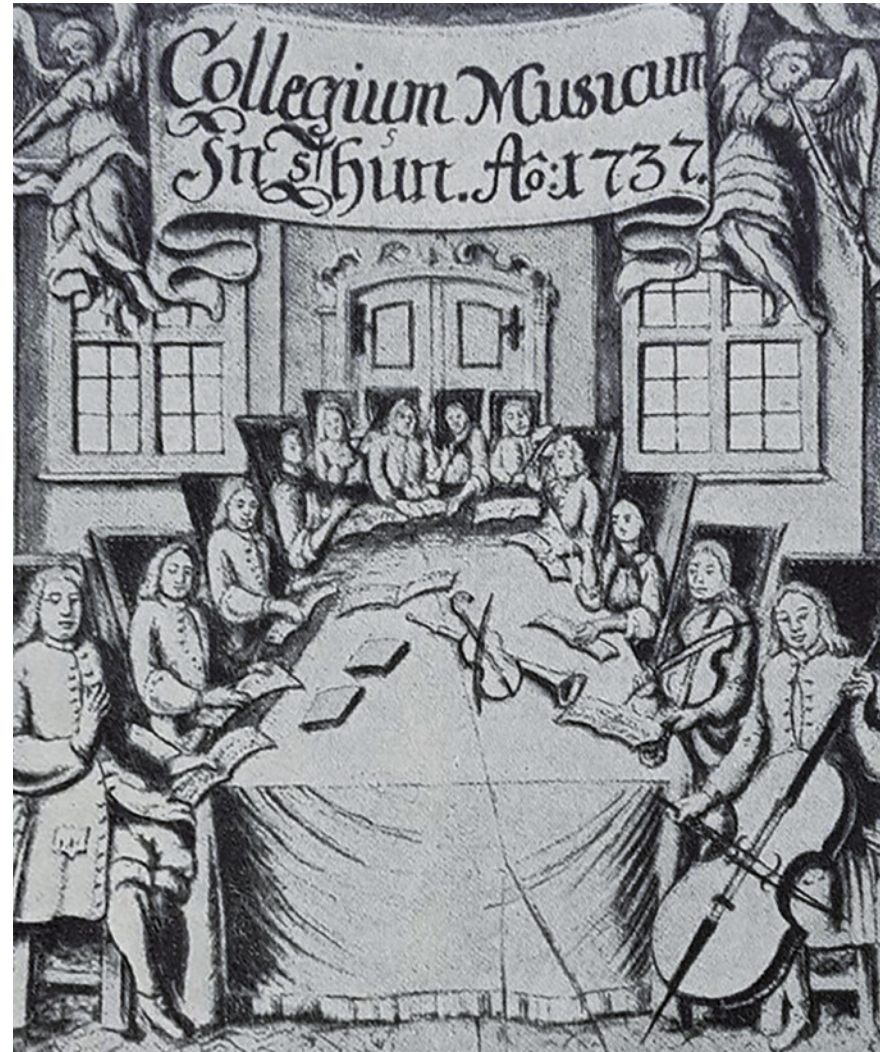 Collegium Musicum
In Thun. Aõ: 1737.